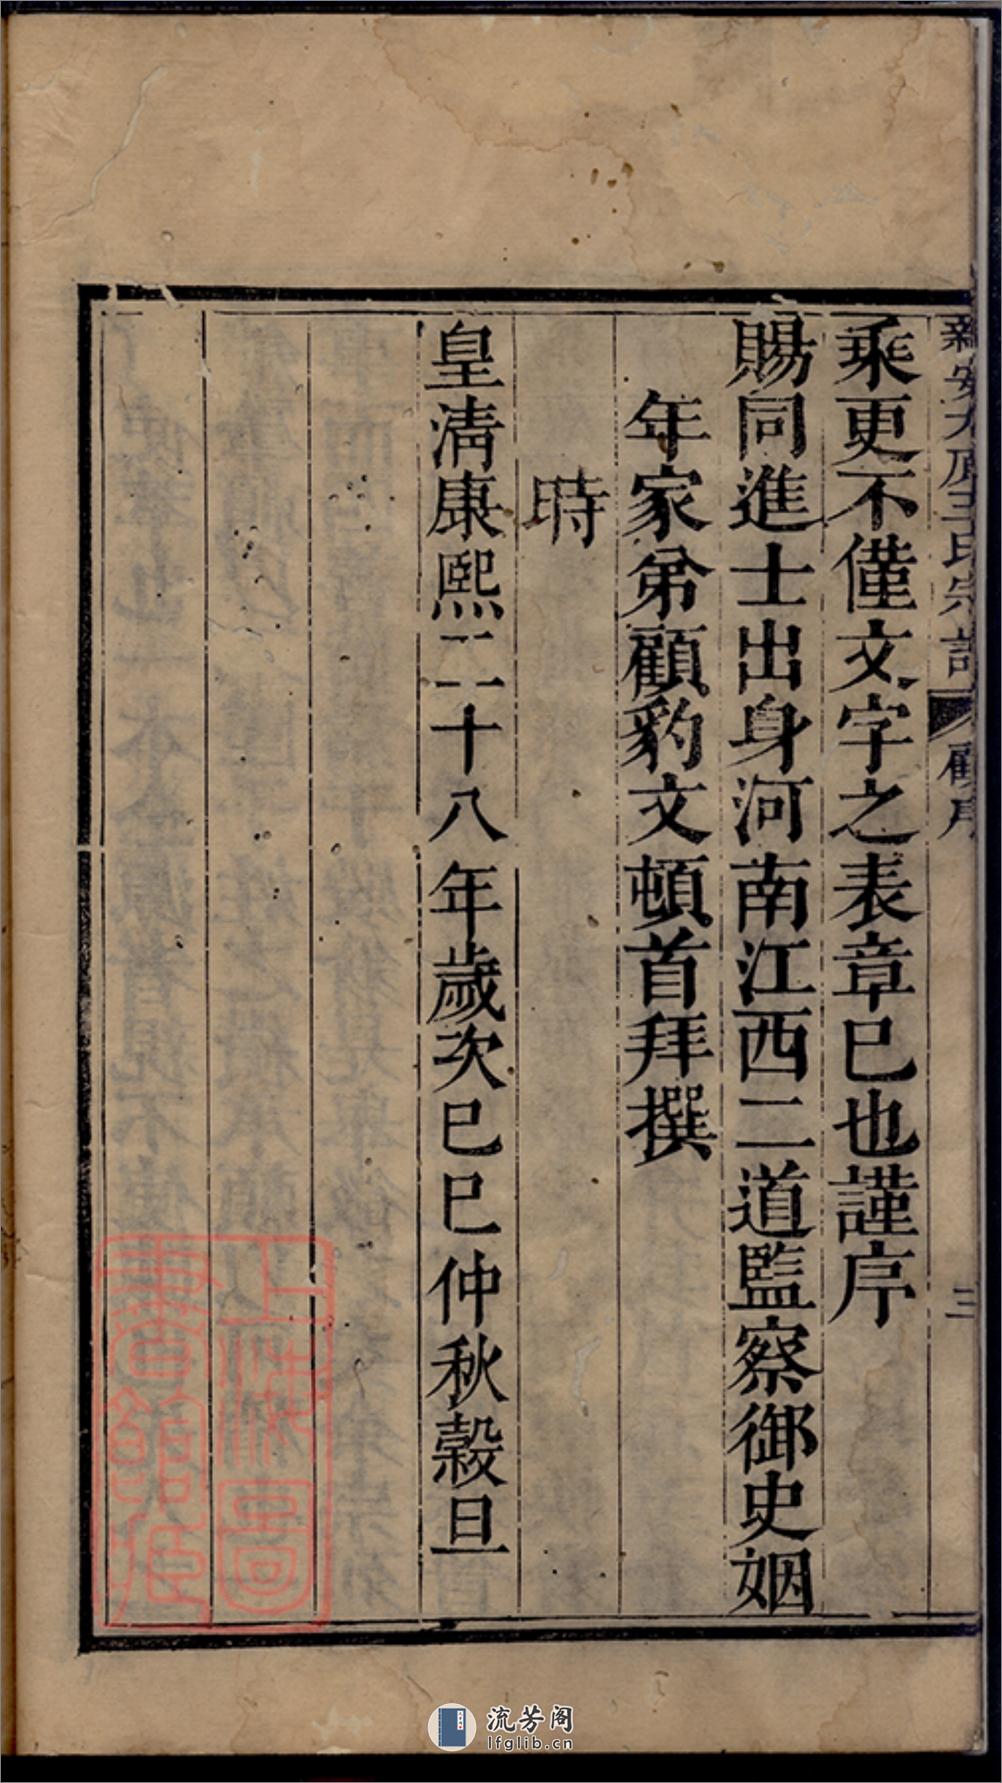 新安太原王氏宗譜 顧序 三
乘更不僅文字之表章已也謹序
賜同進士出身河南江西二道監察御史姻
年家弟顧豹文頓首拜撰
時
皇清康熙二十八年歲次己巳仲秋穀旦
上海圖
書館藏
流芳阁
lfglib.cn